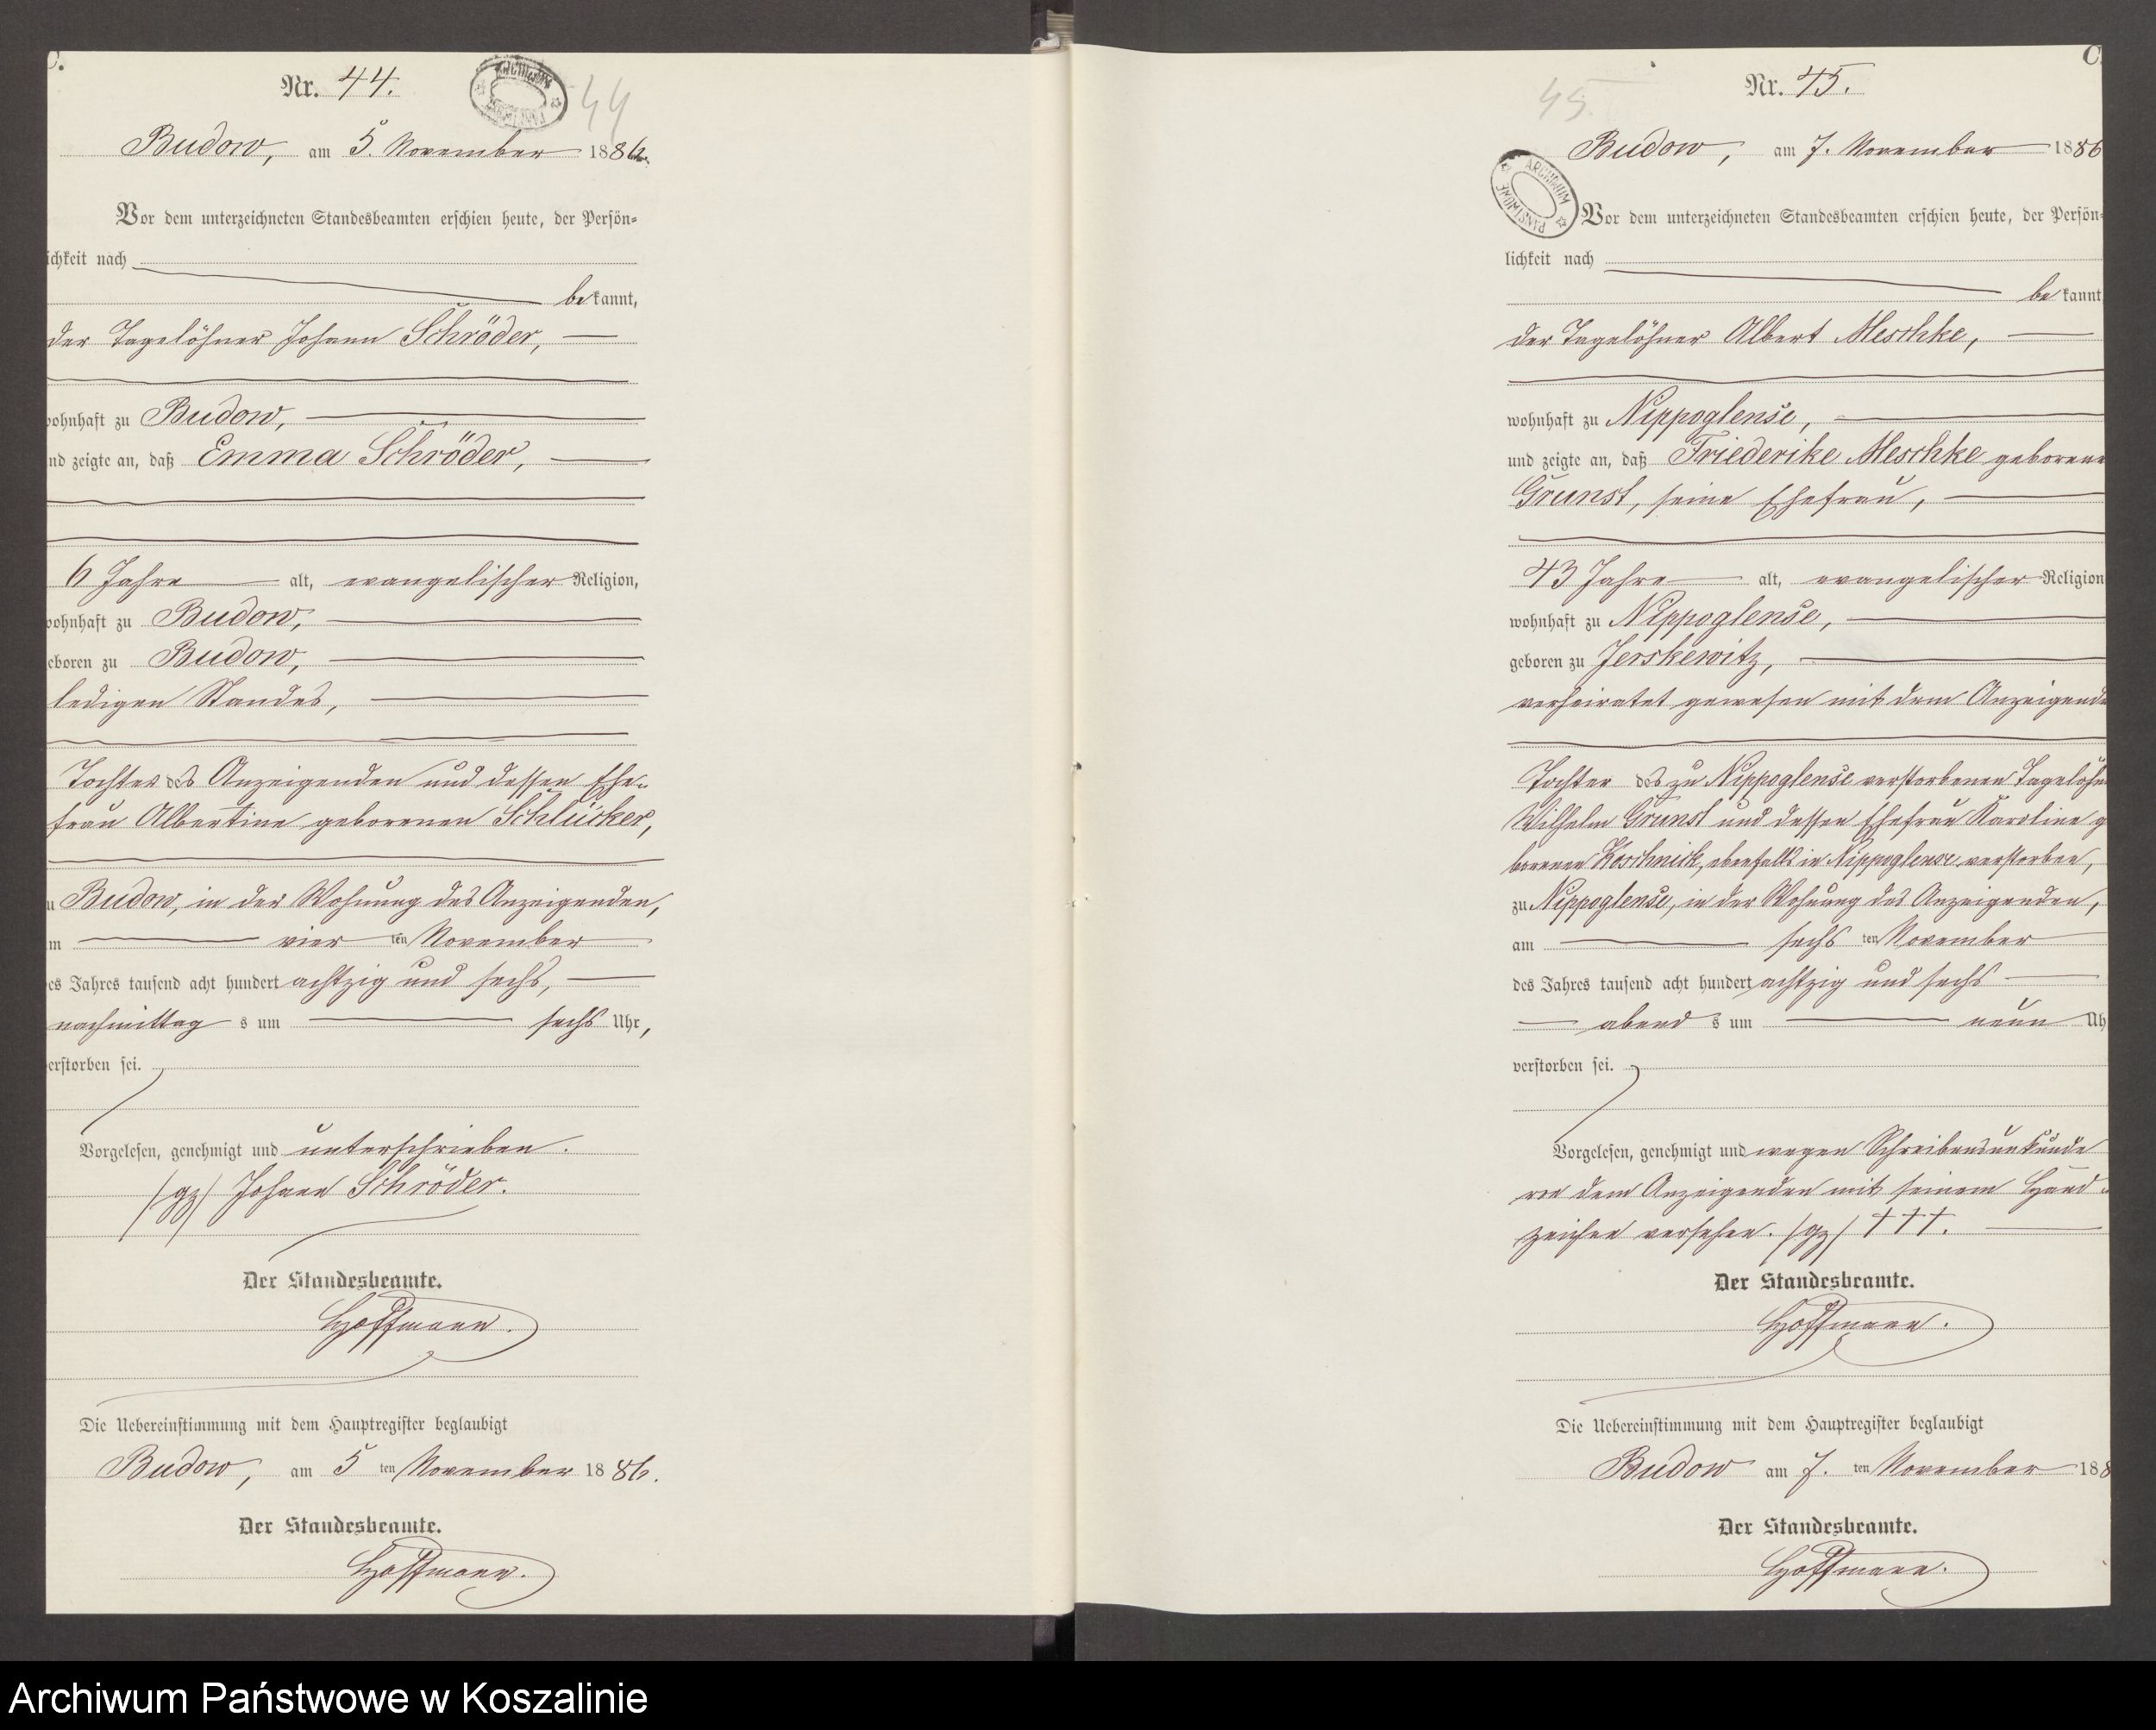 C.
Nr. 44.
44
Budow, am 5. November 1886.
Vor dem unterzeichneten Standesbeamten erschien heute, der Persön-
ichkeit nach
bekannt,
der Tagelöhner Johann Schröder,
wohnhaft zu Budow,
nd zeigte an, daß Emma Schröder,
6 Jahre alt, evangelischer Religion,
wohnhaft zu Budow,
eboren zu Budow,
ledigen Standes,
Tochter des Anzeigenden und dessen Ehe-
frau Albertine geborenen Schlücker,
u Budow, in der Wohnung des Anzeigenden,
m vier ten November
es Jahres tausend acht hundert achtzig und sechs,
nachmittag s um sechs Uhr,
erstorben sei.
Vorgelesen, genehmigt und unterschrieben.
/gz/ Johann Schröder.
Der Standesbeamte.
Hoffmann.
Die Uebereinstimmung mit dem Hauptregister beglaubigt
Budow, am 5 ten November 1886.
Der Standesbeamte.
Hoffmann.
C
Nr. 45.
45.
Budow, am 7. November 1886
ARCHIWUM PAŃSTWOWE
Vor dem unterzeichneten Standesbeamten erschien heute, der Persön-
lichkeit nach
bekannt
der Tagelöhner Albert Meschke,
wohnhaft zu Nippoglense,
und zeigte an, daß Friederike Meschke geborene
Grunst, seine Ehefrau,
43 Jahre alt, evangelischer Religion
wohnhaft zu Nippoglense,
geboren zu Jerskewitz,
verheiratet gewesen mit dem Anzeigende
Tochter des zu Nippoglense verstorbenen Tagelöhn
Wilhelm Grunst und dessen Ehefrau Karoline g
borenen Koschnick, ebenfalls in Nippoglense verstorben,
zu Nippoglense, in der Wohnung des Anzeigenden,
am sechs ten November
des Jahres tausend acht hundert achtzig und sechs
abend s um neun Uh
verstorben sei.
Vorgelesen, genehmigt und wegen Schreibensunkunde
von dem Anzeigenden mit seinem Hand-
zeichen versehen. /gz/ †††.
Der Standesbeamte.
Hoffmann.
Die Uebereinstimmung mit dem Hauptregister beglaubigt
Budow am 7. ten November 188
Der Standesbeamte.
Hoffmann.
Archiwum Państwowe w Koszalinie